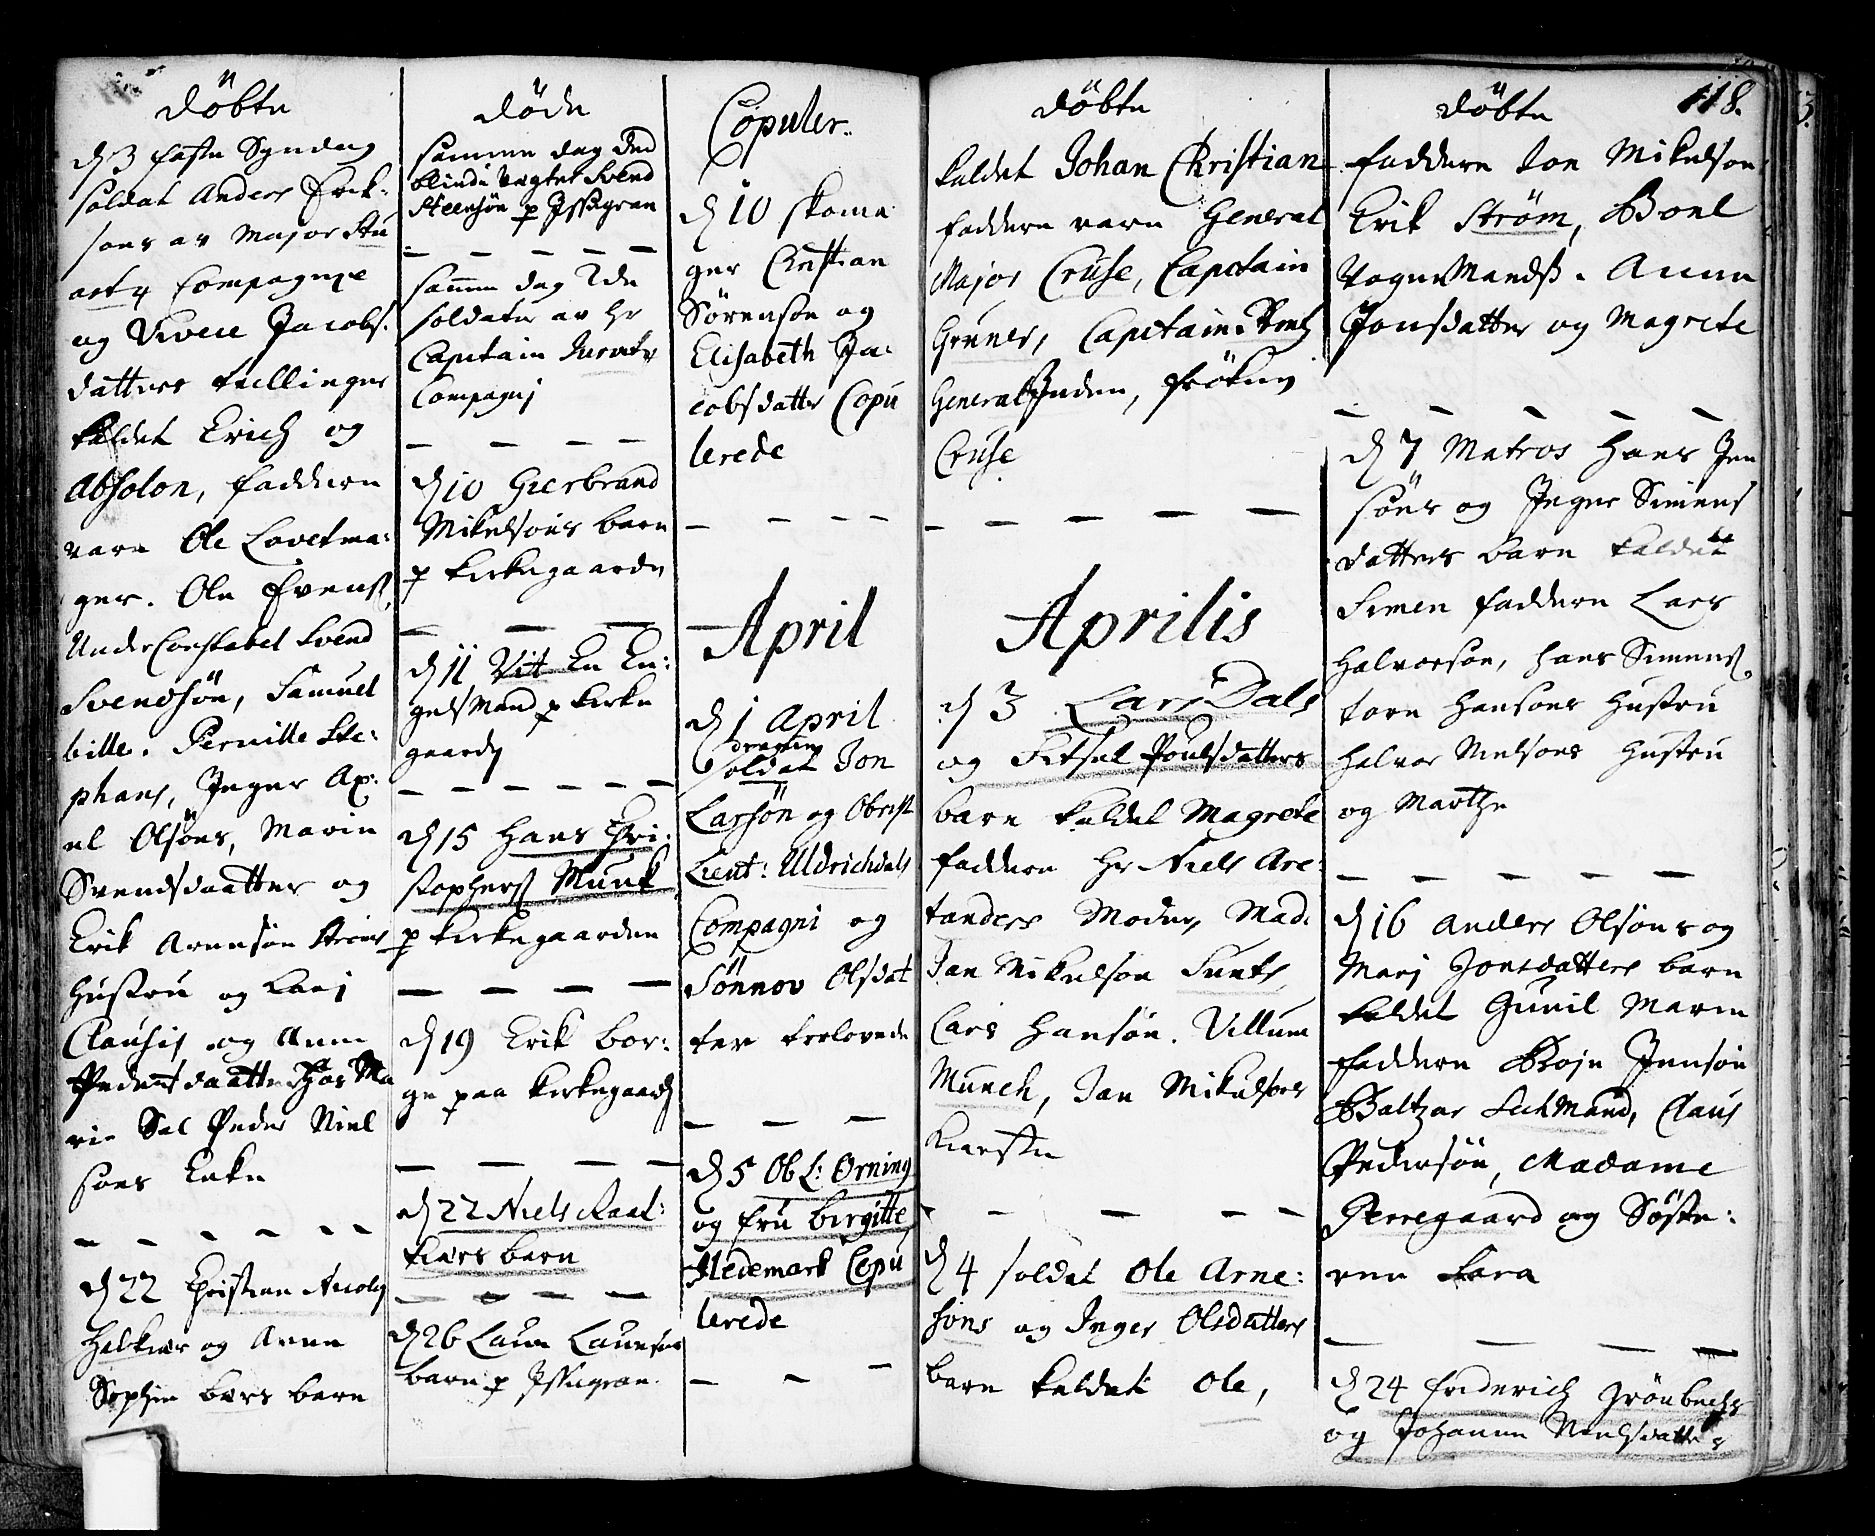 Döbte
d 3 faste Syndag
soldat Anders Erik:
sons av Major Stu
arts Compagnie
og Vivece Jacobs.
datters tvillinger
kaldet Erich og
Absolon, faddere
vare Ole Lovetma:
ger. Ole Evens,
UnderConstabel Svend
Svendsön, Samuel
bille. Pernille Ste:
phans, Inger Ax:
el Olsöns, Marin
Svendsdaatter og
Erik Arnesön
Hustru og
Clausis og Anne
Pedersdaatter Ma
rie Sal Peder Niel
sons Enke
d 22 Christian Nicolaj
Halkiær og Anne
Sophie bærs barn
Döde
samme dag ded
blinde Vegter Svend
Steensön p Issegran
samme dag 2de
soldater av Hr
Capitain
Compagnj
d 10 Gierbrand
Mikelsöns barn
p kirkegaarde
d 11 Vit En En:
gelsMand p kirke
gaard
d 15 Hans Chri:
stophers Munk
p kirkegaarden
d 19 Erik Bor:
ge paa kirkegaard
d 22 Niels Raal:
kiærs barn
d 26 Laue Lauesens
barn p Issegran.
Copuler.
d 10 skoma
ger Christian
Sörensøn og
Elisabeth Ja:
cobsdatter Copu
lerede
April
d 1 April
dragun
Soldat Jon
Larssön og Obrist
Lieut: Uldrichdals
Compagni og
Sönnov Olsdat
ter trolovede
d 5 Ob L: Orning
og fru birgitte
Hedemark Copu
lerede
Döbte
kaldet Johan Christian
faddere vare General
Major Cruse, Capitain
Grüner, Capitain
Generalinden, fröken
Cruse
Aprilis
d 3 Lars Dals
og Sitsel Poulsdatters
barn kaldet Magrete
faddere Hr Niels Are:
tanders Moder, Mad.
Jan Mikelson Sunts,
Lars Hansön. Villum
Munch, Jan Mikelsons
Kiersten
d 4 soldat Ole Arne:
sons og Inger Olsdatters
barn kaldet Ole,
Döbte 118.
faddere Jon Mikelson
Erik Ström, Boel
VognMands. Anne
Jonsdatter og Magrete
d 7 Matros Hans Jen
söns og Inger Simens
datters barn kaldet
Simen faddere Lars
Halvorsön, Hans Simens,
Tore Hansöns Hustru
Halvor Nielsons Hustru
og Marthe
d 16 Anders Olsöns og
Marj Jonsdatters barn
kaldet Gunil Maria
faddere Boje Jensön
Baltzar LechMand, Claus
Pedersön, Madame
Perregaard og Söste:
ren Sara
d 24 friderich Grönbechs
og Johanne Nielsdatters